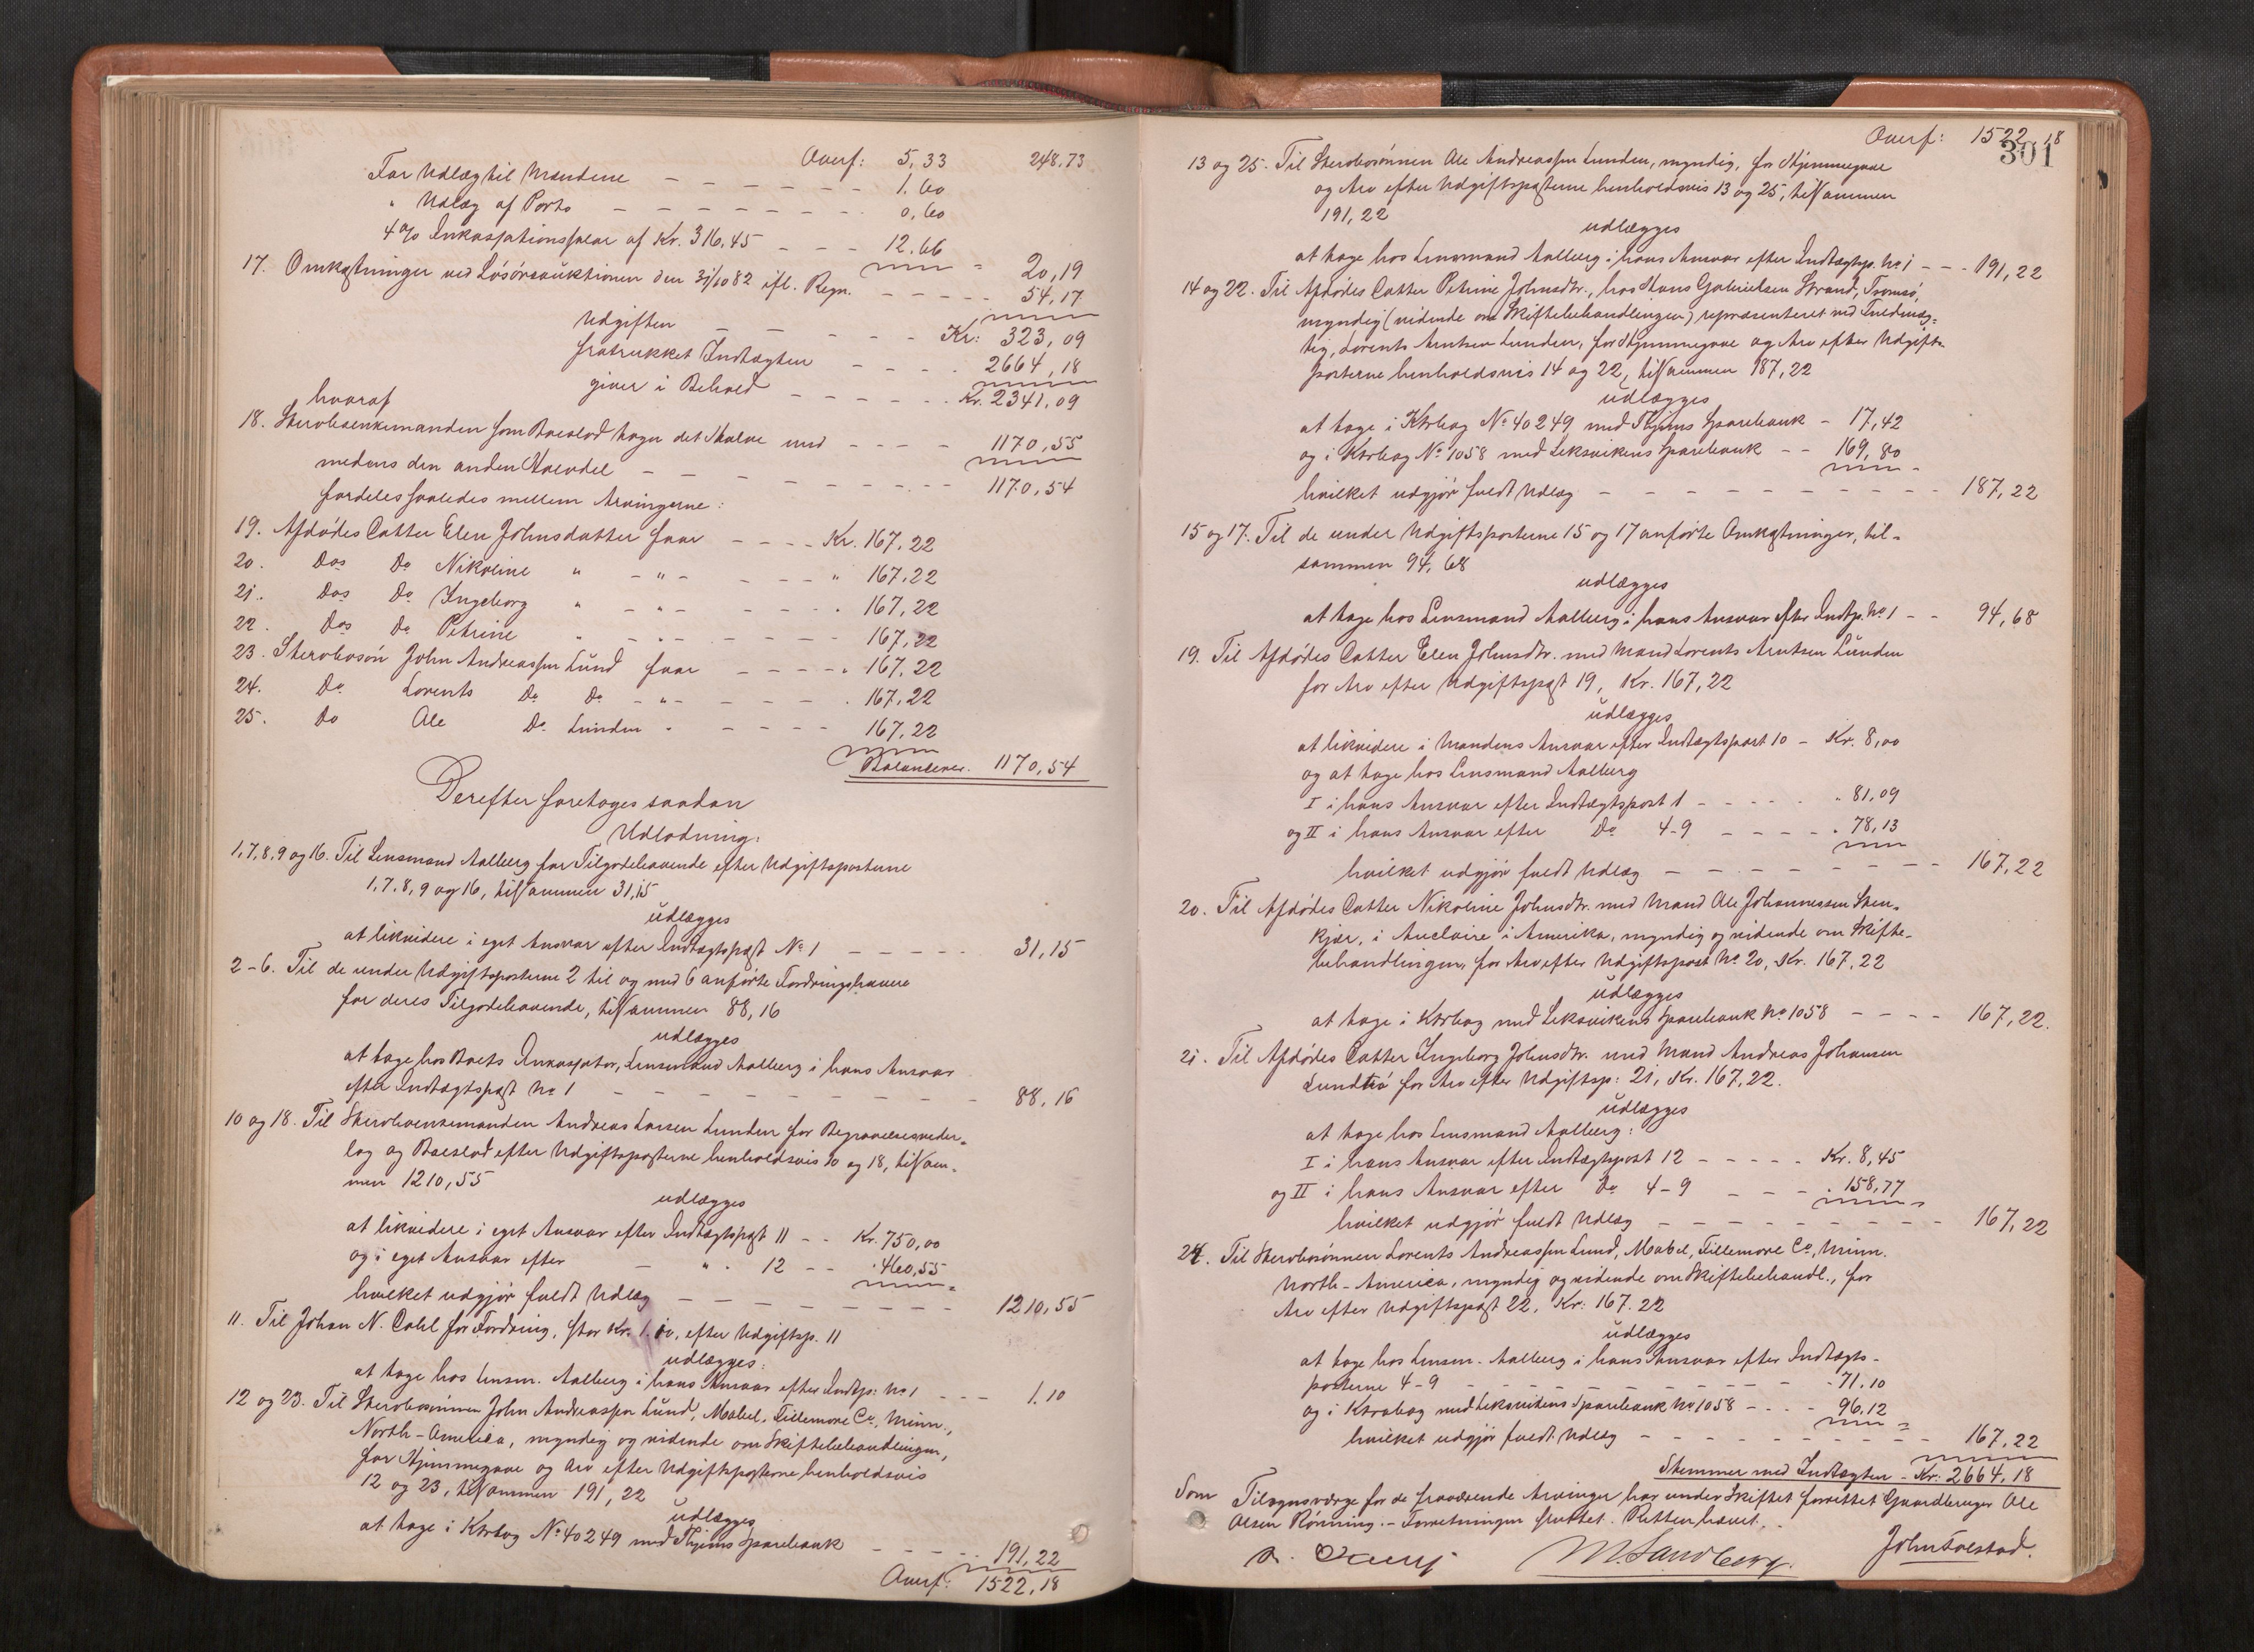 Overf: 5,33 248,73
For Udlæg til Mændene - - - - - - 1.60
" Udlæg af Porto - - - - - - - 0,60
4 % Inkassationssalær af Kr. 316,45 - - - 12.66
20,19
17. Omkostninger ved Løsøreauktionen den 31/10 82 ifl. Regn. - - - - - 54,17
Udgiften - - - - - Kr: 323,09
fratrukket Indtægten - - - - 2664,18
giver i Behold - - - - - - Kr. 2341,09
hvoraf
18. Sterboenkemanden som Boeslod tager det Halve med - - - - 1170,55
medens den anden Halvdel - - - - - - - - - 1170,54
fordeles saaledes mellem Arvingerne:
19. Afdødes Datter Elen Johnsdatter faar - - - - Kr. 167,22
20. Dos Do Nikoline " - " - - - - " 167,22
21. Dos Do Ingeborg " - " - - - - " 167,22
22. Dos Do Petrine " - " - - - - - 167,22
23. Sterbosøn John Andreassen Lund faar - - - - " 167,22
24. Do Lorents Do Do - " - - - - . 167,22
25. Do Ole Do Lunden " - - - - - 167,22
Balancerer. 1170,54
Derefter foretoges saadan
Udlodning:
1,7,8,9 og 16. Til Lensmand Aalberg for Tilgodehavende efter Udgiftsposterne
1,7,8,9 og 16, tilsammen 31,15
udlægges
at likvidere i eget Ansvar efter Indtægtspost No 1 - - - - - 31,15
2-6. Til de under Udgiftsposterne 2 til og med 6 anførte Fordringshavere
for deres Tilgodehavende, tilsammen 88,16
udlægges
at tage hos Boets Inkassator, Lensmand Aalberg i hans Ansvar
efter Indtægtspost No 1 - - - - - - - - - 88,16
10 og 18. Til Sterboenkemanden Andreas Larsen Lunden for Begravelsesveder-
lag og Boeslod efter Udgiftsposterne henholdsvis 10 og 18, tilsam-
men 1210,55
udlægges
at likvidere i eget Ansvar efter Indtægtspost 11 - - Kr. 750,00
og i eget Ansvar efter - " 12 - - " 460,55
hvilket udgjør fuldt Udlæg - - - - - - - - 1210,55
11. Til Johan N. Dahl for Fordring, stor Kr. 1.10, efter Udgiftsp. 11
udlægges:
at tage hos Lensm. Aalberg i hans Ansvar efter Indtp: No 1 - - - 1.10
12 og 23. Til Sterbosønnen John Andreassen Lund, Mabel, Fillemore Co. Minn.,
North-America, myndig og vidende om Skiftebehandlingen,
for Hjemmegave og Arv efter Udgiftsposterne henholdsvis
12 og 23, tilsammen 191,22
udlægges
at tage i Ktrbog No 40249 med Thjems Sparebank - - - - - 191,22
Overf: 1522,18
Overf: 1522,18
301
13 og 25. Til Sterbosønnen Ole Andreassen Lunden, myndig, for Hjemmegave
og Arv efter Udgiftsposterne henholdsvis 13 og 25, tilsammen
191,22
udlægges
at tage hos Lensmand Aalberg i hans Ansvar efter Indtægtsp. No 1 - - - 191,22
14 og 22. Til Afdødes Datter Petrine Johnsdtr., hos Hans Gabrielsen Strand, Tromsø,
myndig (vidende om Skiftebehandlingen) repræsenteret ved Fuldmæg-
tig, Lorents Arntsen Lunden, for Hjemmegave og Arv efter Udgifts-
posterne henholdsvis 14 og 22, tilsammen 187,22
udlægges
at tage i Ktrbog No 40249 med Thjems Sparebank - 17,42
og i Ktrbog No 1058 med Leksvikens Sparebank - - 169,80
hvilket udgjør fuldt Udlæg - - - - - - - - - 187,22
15 og 17. Til de under Udgiftsposterne 15 og 17 anførte Omkostninger, til-
sammen 94,68
udlægges
at tage hos Lensmand Aalberg i hans Ansvar efter Indtp. No 1 - - 94,68
19. Til Afdødes Datter Elen Johnsdtr. med Mand Lorents Arntsen Lunden
for Arv efter Udgiftspost 19, Kr. 167,22
udlægges
at likvidere i Mandens Ansvar efter Indtægtspost 10 - Kr. 8,00
og at tage hos Lensmand Aalberg
I i hans Ansvar efter Indtægtspost 1 - - - - - " 81,09
og II i hans Ansvar efter Do 4-9 - - - - " 78,13
hvilket udgjør fuldt Udlæg - - - - - - - 167,22
20. Til Afdødes Datter Nikoline Johnsdtr. med Mand Ole Johannessen Sten-
kjær, i Auclaire i Amerika, myndig og vidende om Skifte-
behandlingen, for Arv efter Udgiftspost No 20, Kr. 167,22
udlægges
at tage i Ktrbog med Leksvikens Sparebank No 1058 - - - - 167,22.
21. Til Afdødes Datter Ingeborg Johnsdtr. med Mand Andreas Johansen
Lundtrø for Arv efter Udgiftsp: 21, Kr. 167,22.
udlægges
at tage hos Lensmand Aalberg:
I i hans Ansvar efter Indtægtspost 12 - - - - - Kr. 8,45
og II i hans Ansvar efter Do 4-9 - - - " 158,77
hvilket udgjør fuldt Udlæg - - - - - - - - - 167,22
24. Til Sterbosønnen Lorents Andreassen Lund, Mabel, Fillemore Co, Minn.
North-America, myndig og vidende om Skiftebehandl., for
Arv efter Udgiftspost 22, Kr: 167.22
udlægges
at tage hos Lensm. Aalberg i hans Ansvar efter Indtægts-
posterne 4-9 - - - - - - - - - - 71.10
og i Ktrabog med Leksvikens Sparebank No 1058 - - - - 96,12
hvilket udgjør fuldt Udlæg - - - - - - - - - 167,22
Stemmer med Indtægten - Kr: 2664,18
Som Tilsynsværge for de fraværende Arvinger har under Skiftet forrettet Gaardbruger Ole
Olsen Rønning. - Forretningen sluttet. Retten hævet. -
M Sandberg. John Folstad.